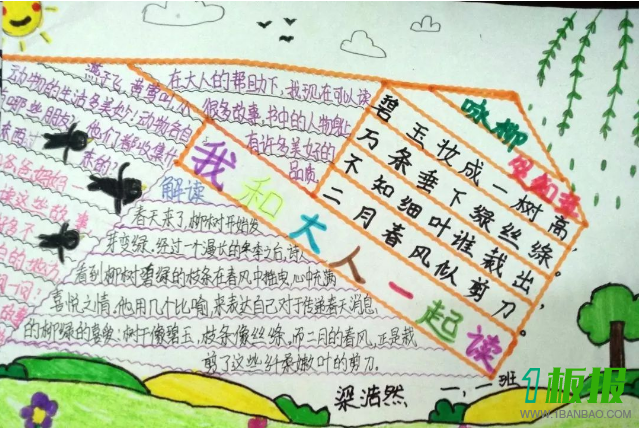 动物的
燕子飞，黄莺叫，从
的生活多美妙！动物各自
有哪些朋友
他们都吃什
来的？
在大人的帮助下，我现在可以读
很多故事，书中的人物身上
有许多美好的
品质
咏柳
贺知章
碧玉妆成一树高，
万条垂下绿丝绦。
不知细叶谁裁出，
二月春风似剪刀。
我和大人一起读
解读
春天来了，柳树开始发
芽变绿，经过一个漫长的冬季之后，诗人
看到柳树碧绿的枝条在春风中摇曳，心中充满
喜悦之情，他用几个比喻，来表达自己对于传递春天消息
的柳树的喜爱：树干像碧玉，枝条像丝绦，而二月的春风，正是裁
剪了这些纤柔嫩叶的剪刀。
梁浩然
一，一班
1板报
WWW.1BANBAO.COM